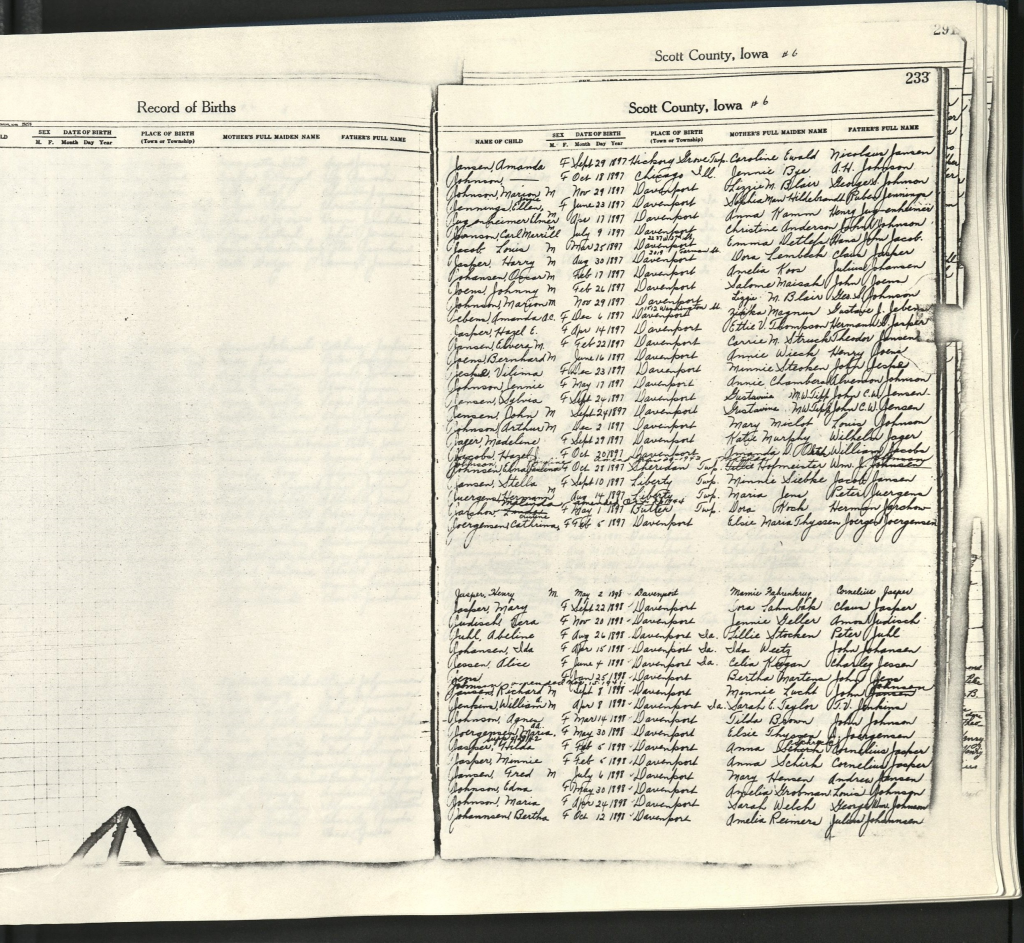 291
Scott County, Iowa #6
233
Record of Births
Scott County, Iowa #6
SEX DATE OF BIRTH PLACE OF BIRTH MOTHER'S FULL MAIDEN NAME FATHER'S FULL NAME
M. F. Month Day Year (Town or Township)
NAME OF CHILD SEX DATE OF BIRTH PLACE OF BIRTH MOTHER'S FULL MAIDEN NAME FATHER'S FULL NAME
M. F. Month Day Year (Town or Township)
Jensen, Amanda F Sept 29 1897 Hickory Grove Twp. Caroline Ewald Nicolaus Jensen
Johnson, F Oct 18 1897 Chicago Ill. Jennie Bye A.H. Johnson
Johnson, Marion M Nov 29 1897 Davenport Lizzie M. Blair George S. Johnson
Jennings, Ellen F June 23 1897 Davenport Sophia Hildebrandt Jennings
Jugenheimer Elmer M Apr 17 1897 Davenport Anna Kamm Henry Jugenheimer
Carl Merrill July 9 1897 Davenport Christine Anderson John A Johnson
Jacob Louis M Mar 25 1897 Davenport Emma Detlefs Hans John Jacob.
Jasper, Harry M Aug 30 1897 Davenport Dora Lembdek Claus Jasper
Johansen, Oscar M Feb 17 1897 Davenport Amelia Koos Julius Johansen
Joens, Johnny M Feb 26 1897 Davenport Salome Maisak John Joens
Johnson, Marion M Nov 29 1897 Davenport Lizzie M. Blair Geo. S. Johnson
Jebens, Amanda F Dec 6 1897 Davenport 1712 Washington St Magnus Gustave J. Jebens
Jasper, Hazel E. F Apr 14 1897 Davenport Ettie V. Thompson Herman Jasper
Jansen, Elvera M. F Feb 22 1897 Davenport Carrie M. Struck Theodor Jansen
Joens, Bernhard M June 16 1897 Davenport Annie Wiech Henry Joens
Jespe, Vilima F Dec 23 1897 Davenport Minnie Stecken John Jespe
Johnson, Jennie F May 17 1897 Davenport Annie Chambers Johnson
Jensen, Sylvia F Sept 24 1897 Davenport Gustavine M.W. Tipp John C.W. Jensen
Jensen, John M Sept 24 1897 Davenport Gustavine M.W. Tipp John C.W. Jensen
Johnson, Arthur M Dec 2 1897 Davenport Mary Michot Louis Johnson
Jager, Madeline F Sept 29 1897 Davenport Katie Murphy Wilhelm Jager
Jacobs, Hazel F Oct 20 1897 Davenport Amanda D. William Jacobs
Johnsen, Elna F Oct 28 1897 Sheridan Twp. Hofmeister Wm. J. Johnsen
Jansen, Stella F Sept 10 1897 Liberty Twp. Minnie Siebke Jacob Jansen
Juergens, Hermann M Aug 14 1897 Liberty Twp. Maria Jens Peter Juergens
Jarchow, F May 1 1897 Butler Twp. Dora Koch Herman Jarchow
Joergensen, Cathrina F Feb 6 1897 Davenport Elsie Maria Thyssen Joergen Joergensen
Jasper, Henry M May 2 1898 Davenport Mamie Fahrenkrug Cornelius Jasper
Jasper, Mary F Sept 22 1898 Davenport Dora Lahmbak Claus Jasper
Judisch, Vera F Nov 20 1898 Davenport Jennie Geller Amos Judisch
Juhl, Abeline F Aug 26 1898 Davenport Ia. Tillie Stocken Peter Juhl
Johansen, Ida F Apr 15 1898 Davenport Ia. Ida Weetz John Johansen
Jessen, Alice F June 4 1898 Davenport Ia. Celia Kogan Charley Jessen
Jens F Jan 25 1898 Davenport Bertha Martens John Jens
Johnsen, Richard M Sept 8 1898 Davenport Minnie Lucht John Johnsen
Jenkins, William M Apr 8 1898 Davenport Ia. Sarah E. Taylor T.V. Jenkins
Johnson, Agnes F Mar 14 1898 Davenport Tilda Brown John Johnsen
Joergensen, Maria F May 30 1898 Davenport Elsie Thyssen J. Joergensen
Jasper, Hilda F Feb 6 1898 Davenport Anna Schirk Cornelius Jasper
Jasper, Minnie F Feb 6 1898 Davenport Anna Schirk Cornelius Jasper
Jansen, Fred M July 6 1898 Davenport Mary Hansen Andrew Jansen
Johnson, Edna F May 30 1898 Davenport Amelia Grobman Louis Johnson
Johnson, Maria F Apr 24 1898 Davenport Sarah Welch George Wm. Johnson
Johannsen, Bertha F Oct 12 1898 Davenport Amelia Reimers Julius Johannsen